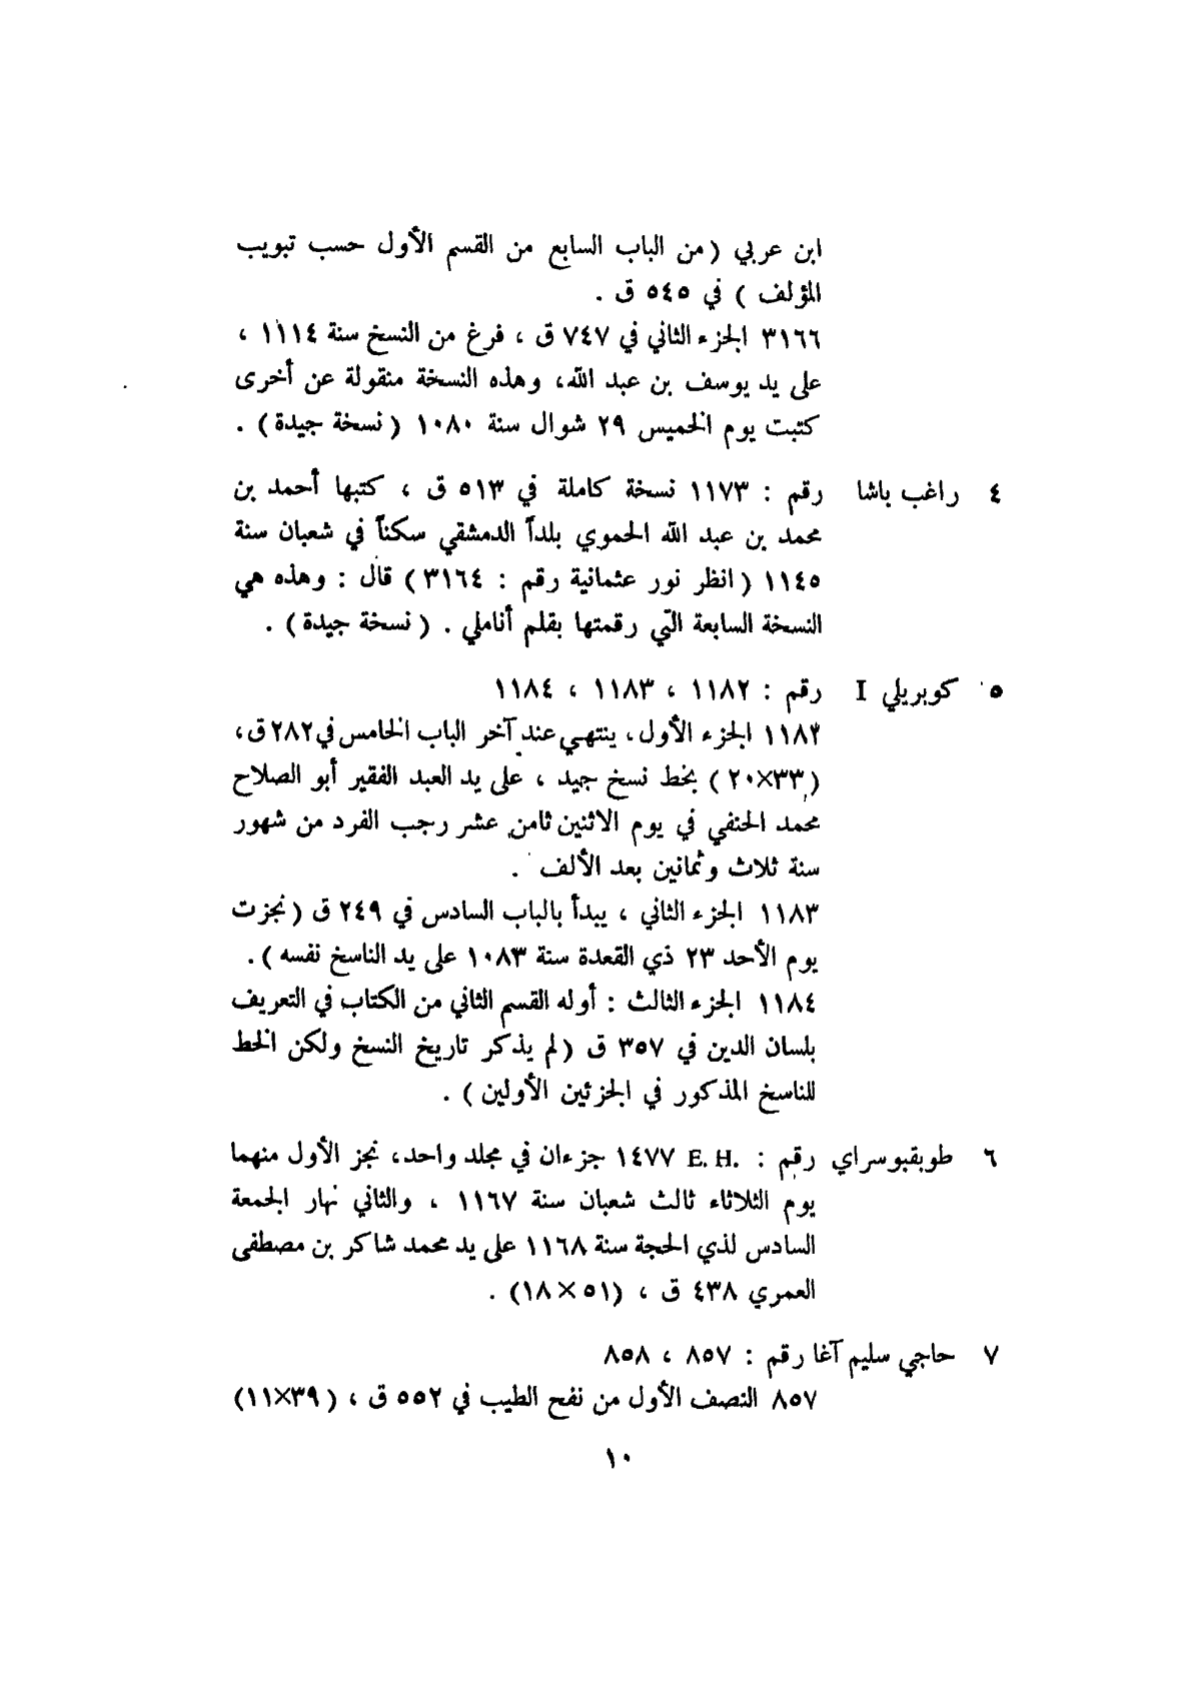 ابن عربي (من الباب السابع من القسم الأول حسب تبويب
المؤلف ) في ٥٤٥ ق .
٣١٦٦ الجزء الثاني في ٧٤٧ ق ، فرغ من النسخ سنة ١١١٤ ،
على يد يوسف بن عبد الله، وهذه النسخة منقولة عن أخرى
كتبت يوم الخميس ٢٩ شوال سنة ١٠٨٠ ( نسخة جيدة ) .
٤ راغب باشا رقم : ١١٧٣ نسخة كاملة في ٥١٣ ق ، كتبها أحمد بن
محمد بن عبد الله الحموي بلداً الدمشقي سكناً في شعبان سنة
١١٤٥ ( انظر نور عثمانية رقم : ٣١٦٤ ) قال : وهذه هي
النسخة السابعة التي رقمتها بقلم أناملي . ( نسخة جيدة ) .
٥ كوبريلي I رقم : ١١٨٢ ، ١١٨٣ ، ١١٨٤
١١٨٢ الجزء الأول، ينتهي عند آخر الباب الخامس في ٢٨٢ ق ،
( ٣٣×٢٠ ) بخط نسخ جيد ، على يد العبد الفقير أبو الصلاح
محمد الحنفي في يوم الاثنين ثامن عشر رجب الفرد من شهور
سنة ثلاث وثمانين بعد الألف .
١١٨٣ الجزء الثاني ، يبدأ بالباب السادس في ٢٤٩ ق ( نجزت
يوم الأحد ٢٣ ذي القعدة سنة ١٠٨٣ على يد الناسخ نفسه ) .
١١٨٤ الجزء الثالث : أوله القسم الثاني من الكتاب في التعريف
بلسان الدين في ٣٥٧ ق ( لم يذكر تاريخ النسخ ولكن الخط
للناسخ المذكور في الجزئين الأولين ) .
٦ طوبقبوسراي رقم : E. H. ١٤٧٧ جزءان في مجلد واحد، نجز الأول منهما
يوم الثلاثاء ثالث شعبان سنة ١١٦٧ ، والثاني نهار الجمعة
السادس لذي الحجة سنة ١١٦٨ على يد محمد شاكر بن مصطفى
العمري ٤٣٨ ق ، (٥١×١٨) .
٧ حاجي سليم آغا رقم : ٨٥٧ ، ٨٥٨
٨٥٧ النصف الأول من نفح الطيب في ٥٥٢ ق ، ( ٣٩×١١)
١٠